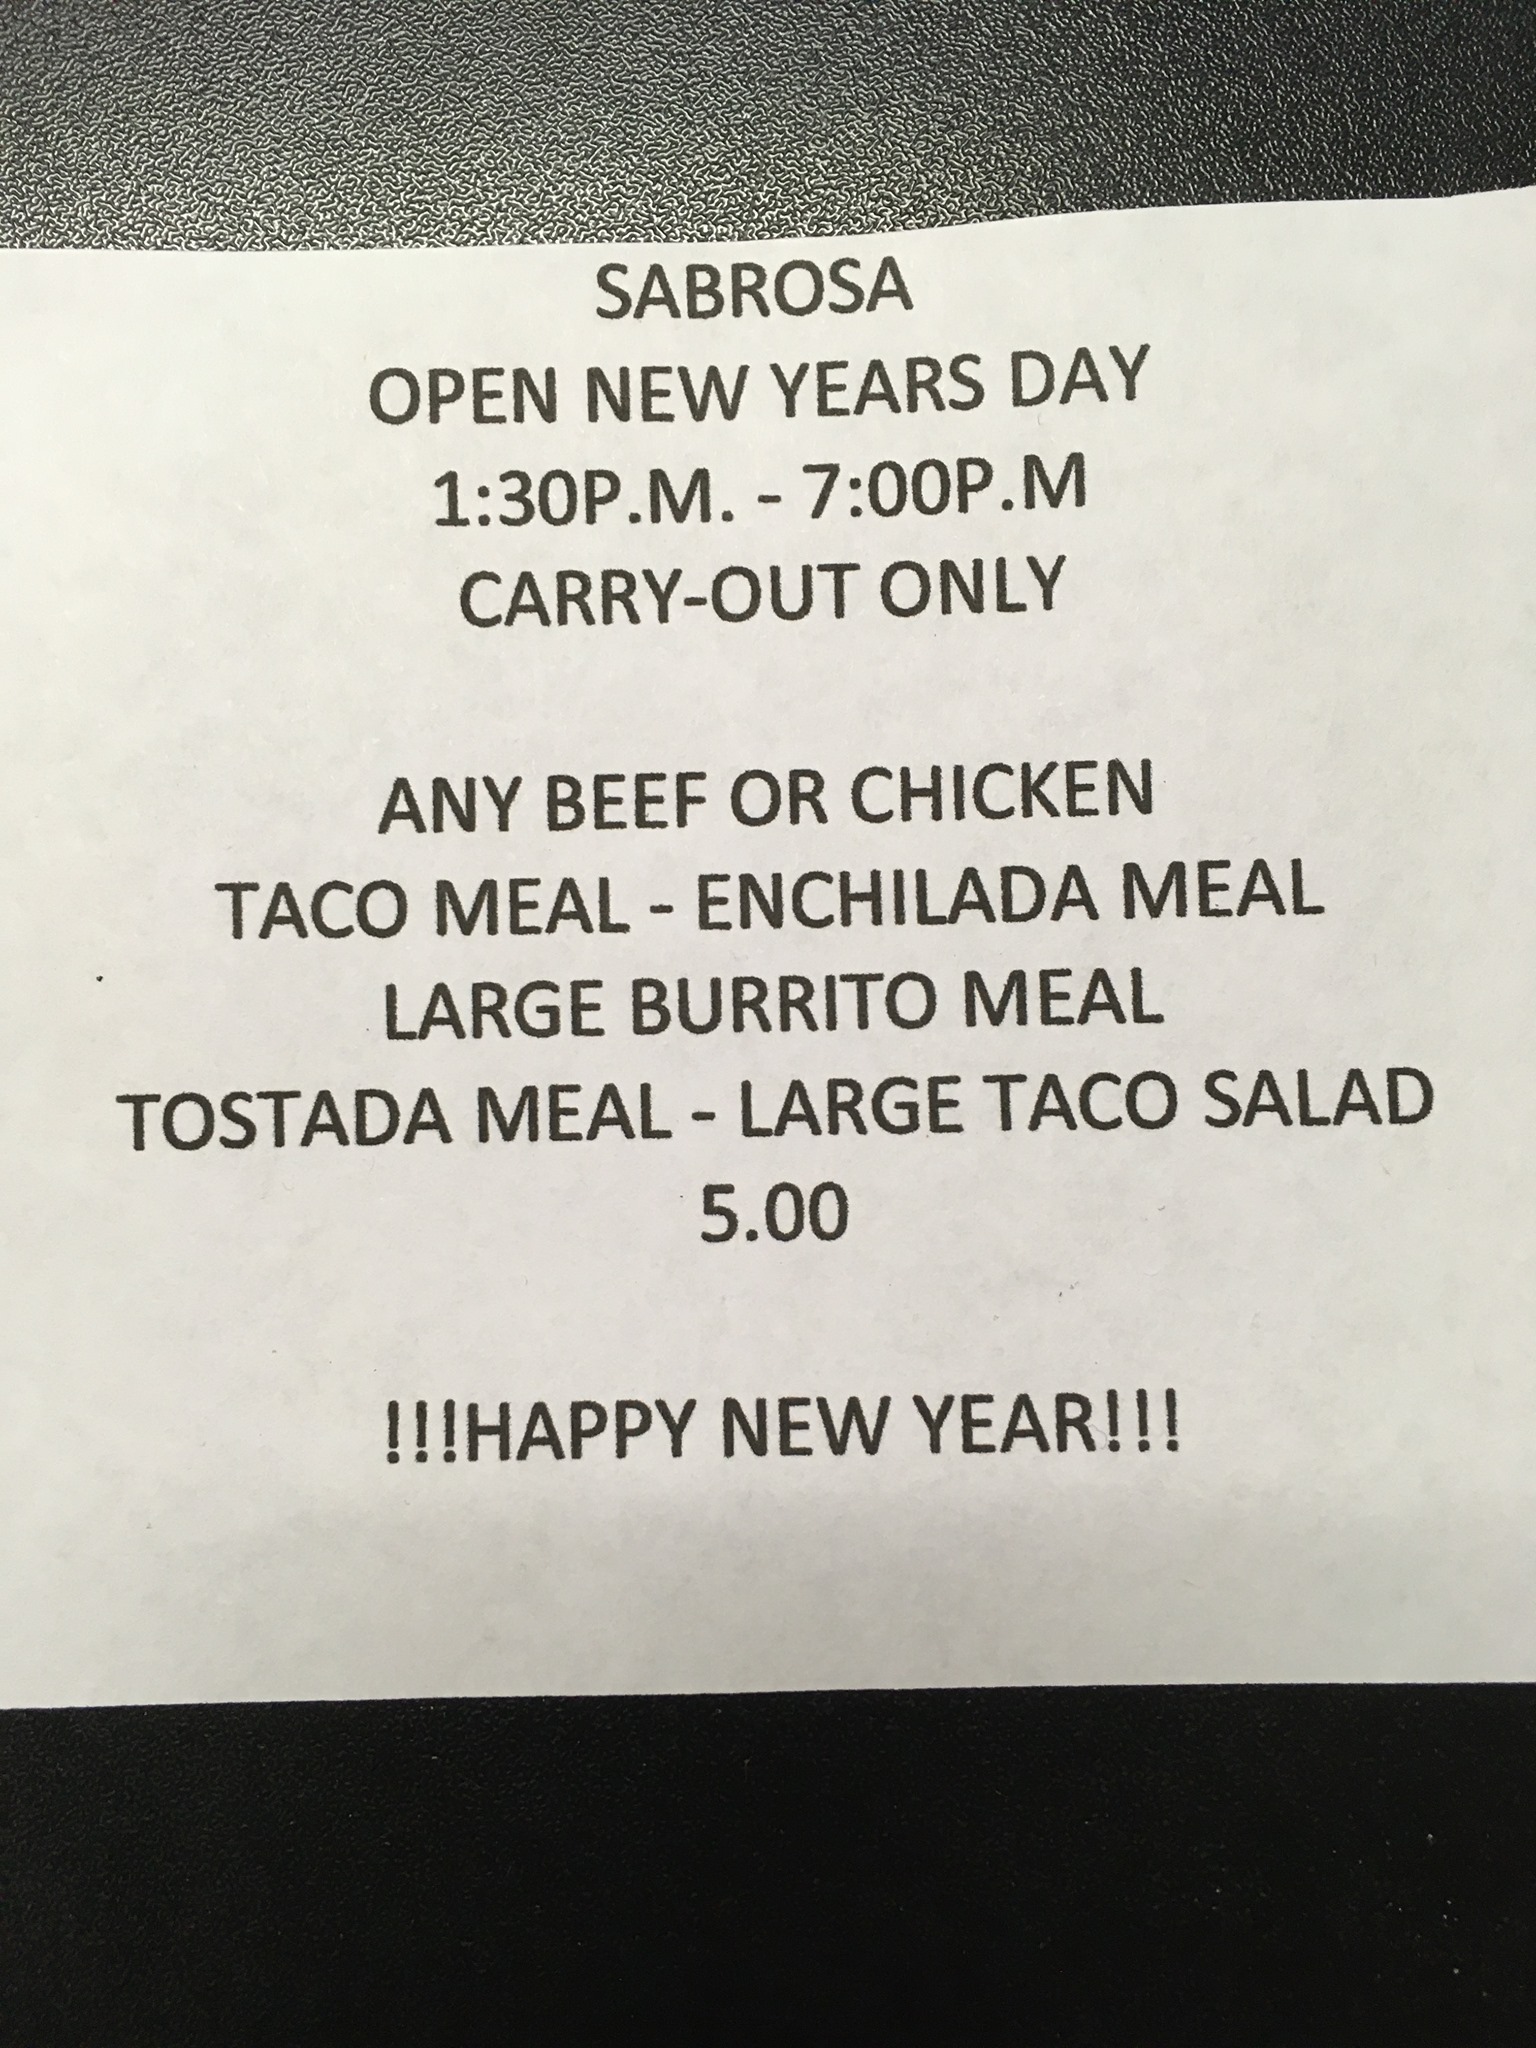 SABROSA
OPEN NEW YEARS DAY
1:30P.M. - 7:00P.M
CARRY-OUT ONLY
ANY BEEF OR CHICKEN
TACO MEAL - ENCHILADA MEAL
LARGE BURRITO MEAL
TOSTADA MEAL - LARGE TACO SALAD
5.00
!!!HAPPY NEW YEAR!!!